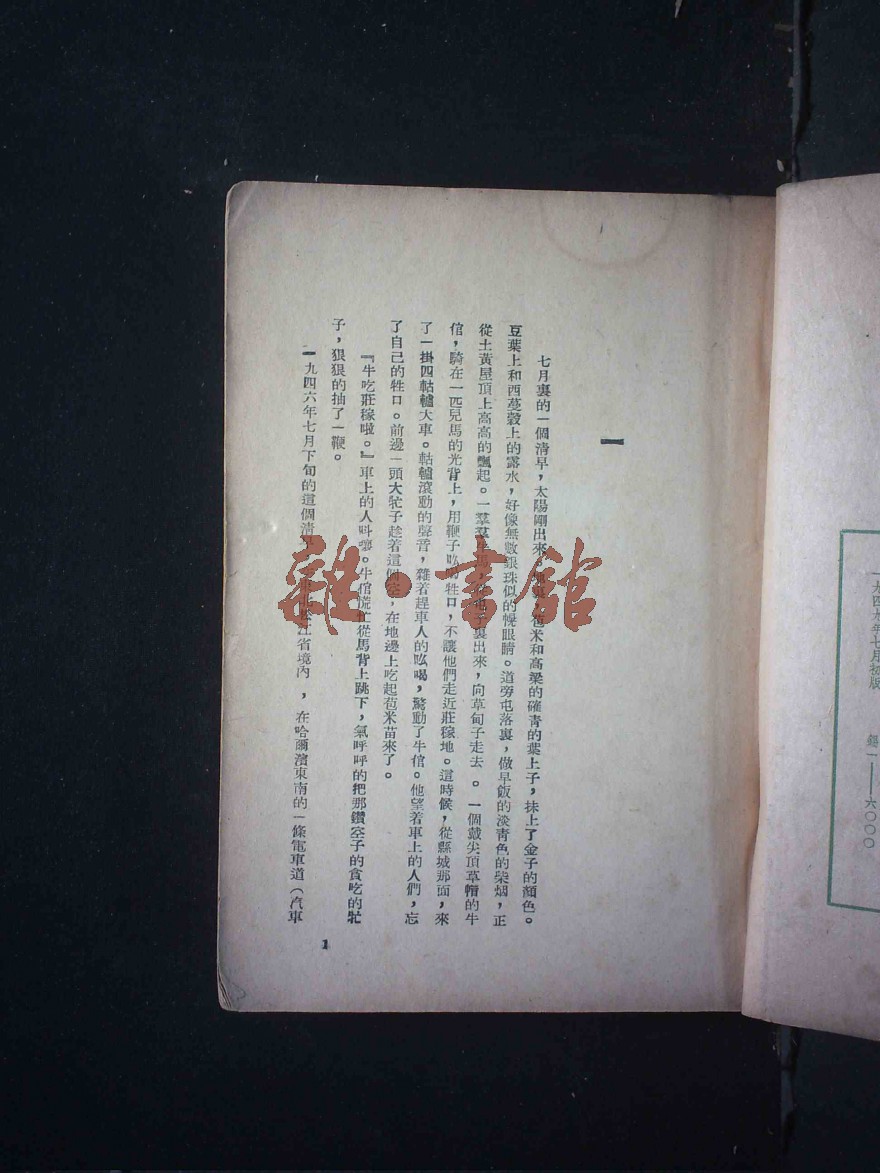 一
七月裏的一個清早，太陽剛出來。苞米和高粱的確青的葉上子，抹上了金子的顏色。
豆葉上和西蔓穀上的露水，好像無數銀珠似的愰眼睛。道旁屯落裏，做早飯的淡青色的柴烟，正
從土黃屋頂上高高的飄起。一羣羣牛馬，從屯子裏出來，向草甸子走去。一個戴尖頂草帽的牛
倌，騎在一匹兒馬的光背上，用鞭子吆喝牲口，不讓他們走近莊稼地。這時候，從縣城那面，來
了一掛四軲轆大車。軲轆滾動的聲音，雜着趕車人的吆喝，驚動了牛倌。他望着車上的人們，忘
了自己的牲口。前邊一頭大牤子趁着這個空，在地邊上吃起苞米苗來了。
『牛吃莊稼啦。』車上的人呌嚷。牛倌慌忙從馬背上跳下，氣呼呼的把那鑽空子的貪吃的牤
子，狠狠的抽了一鞭。
一九四六年七月下旬的這個清早，松江省境內，在哈爾濱東南的一條電車道（汽車
1
雜·書館
一九四九年七月初版
錫一——六〇〇〇